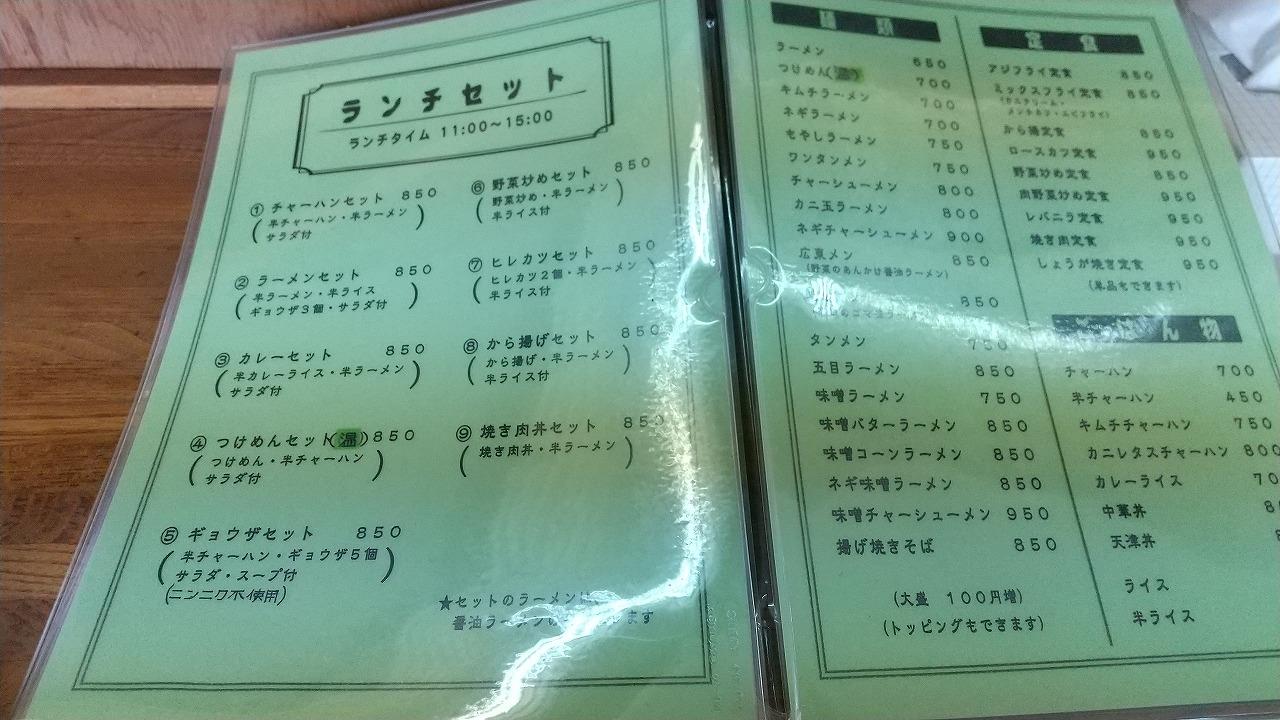 ランチセット
ランチタイム 11:00～15:00
① チャーハンセット 850
(半チャーハン・半ラーメン
サラダ付)
② ラーメンセット 850
(半ラーメン・半ライス
ギョウザ3個・サラダ付)
③ カレーセット 850
(半カレーライス・半ラーメン
サラダ付)
④ つけめんセット(温) 850
(つけめん・半チャーハン
サラダ付)
⑤ ギョウザセット 850
(半チャーハン・ギョウザ5個
サラダ・スープ付)
(ニンニク不使用)
⑥ 野菜炒めセット 850
(野菜炒め・半ラーメン
半ライス付)
⑦ ヒレカツセット 850
(ヒレカツ2個・半ラーメン
半ライス付)
⑧ から揚げセット 850
(から揚げ・半ラーメン
半ライス付)
⑨ 焼き肉丼セット 850
(焼き肉丼・半ラーメン)
★セットのラーメンは
醤油ラーメン
ます
麺類
ラーメン 650
つけめん(温) 700
キムチラーメン 700
ネギラーメン 700
もやしラーメン 750
ワンタンメン 750
チャーシューメン 800
カニ玉ラーメン 800
ネギチャーシューメン 900
広東メン 850
(野菜のあんかけ醤油ラーメン)
850
タンメン 750
五目ラーメン 850
味噌ラーメン 750
味噌バターラーメン 850
味噌コーンラーメン 850
ネギ味噌ラーメン 850
味噌チャーシューメン 950
揚げ焼きそば 850
(大盛 100円増)
(トッピングもできます)
定食
アジフライ定食 850
ミックスフライ定食 850
(カニクリーム・
メンチカツ・エビフライ)
から揚定食 850
ロースカツ定食 950
野菜炒め定食 850
肉野菜炒め定食 950
レバニラ定食 950
焼き肉定食 950
しょうが焼き定食 950
(単品もできます)
ごはん物
チャーハン 700
半チャーハン 450
キムチチャーハン 750
カニレタスチャーハン 800
カレーライス 70
中華丼
天津丼
ライス
半ライス